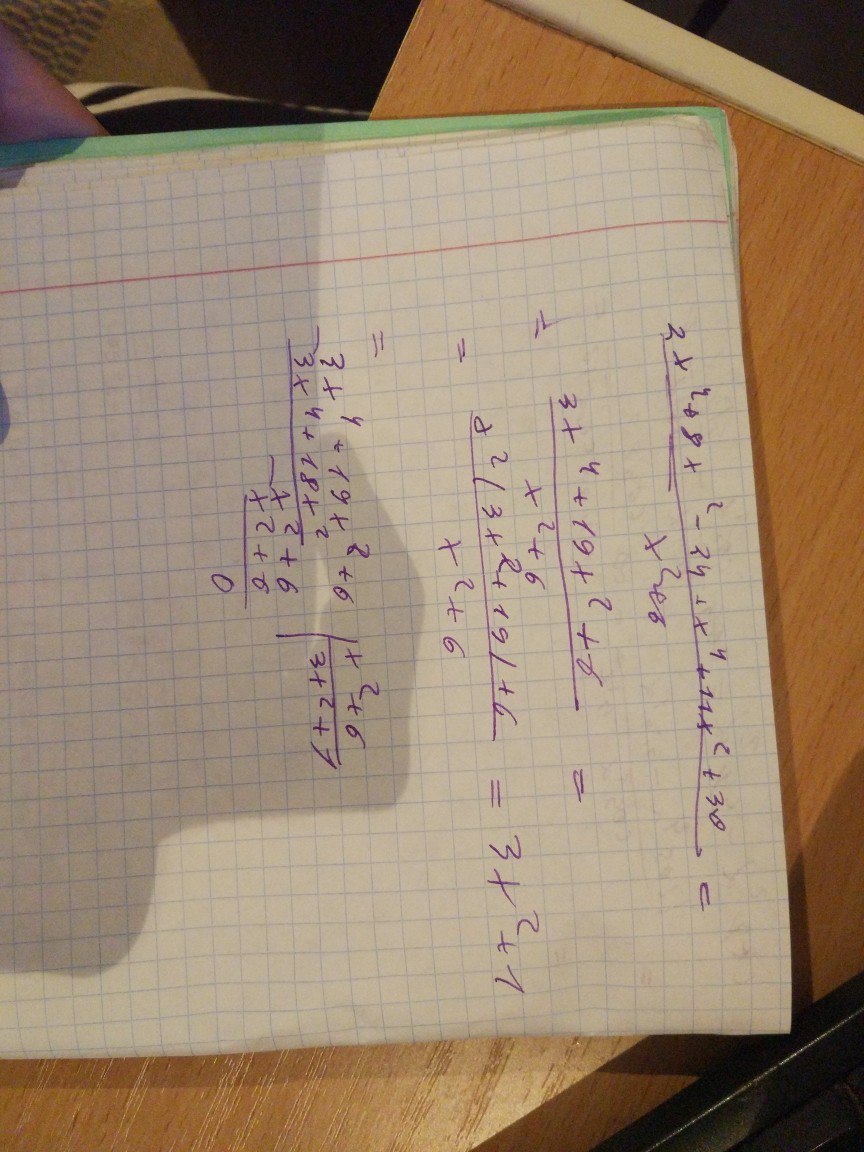 2x⁴+8x²-24+x⁴+11x²+30 =
x²+6
= 3x⁴+19x²+6 =
x²+6
= x²(3x²+19)+6 = 3x²+1
x²+6
=
- 3x⁴+19x²+6 | x²+6
3x⁴+18x² | 3x²+1
- x²+6
x²+6
0